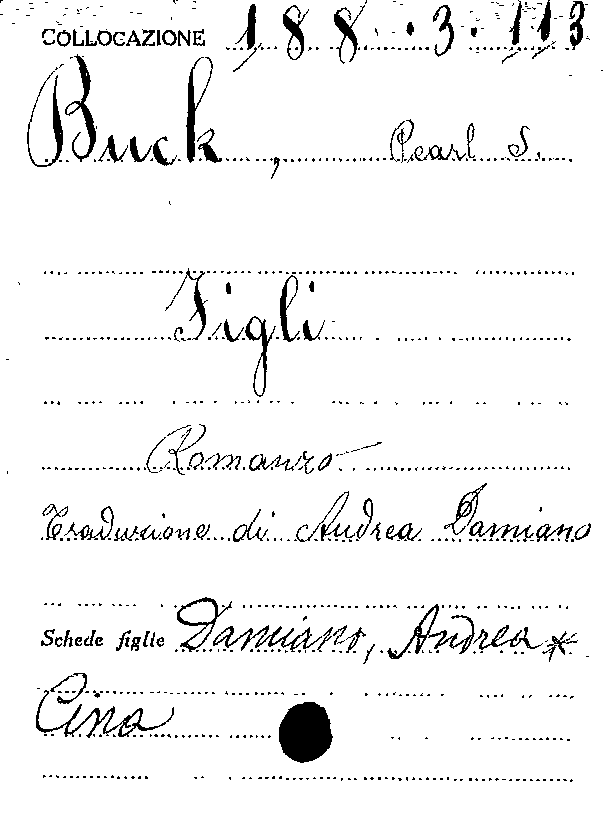 COLLOCAZIONE 188.3.113
Buck, Pearl S.
Figli
Romanzo
Traduzione di Andrea Damiano
Schede figlie Damiano, Andrea *
Cina